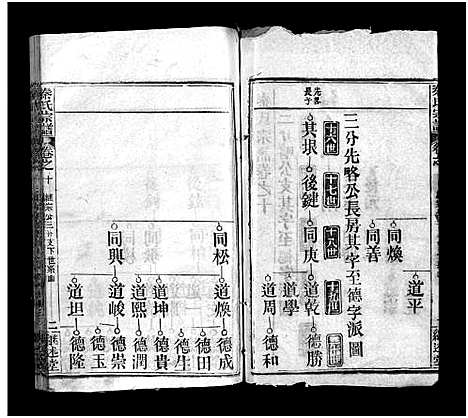 同煥
同善
道平
三分先略公長房其字至德字派圖
先略
長子
十六世
十七世
十八世
十九世
二十世
其垠
後鍵
同庚
道乾
道學
道周
德勝
德和
同松
同興
道煥
道坤
道熙
道峻
道坦
德成
德田
德生
德貴
德潤
德崇
德玉
德隆
秦氏宗譜
卷之十
二